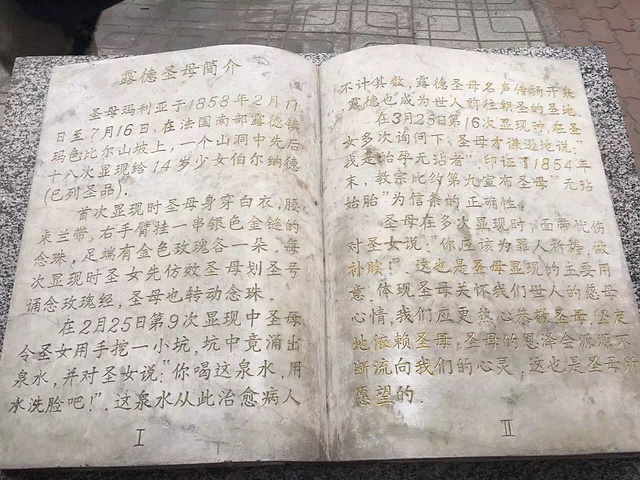 露德圣母简介
圣母玛利亚于1858年2月11
日至7月16日,在法国南部露德镇
玛色比尔山坡上,一个山洞中先后
十八次显现给14岁少女伯尔纳德
(已列圣品).
首次显现时圣母身穿白衣,腰
束兰带,右手臂挂一串银色金链的
念珠,足端有金色玫瑰各一朵.每
次显现时圣女先仿效圣母划圣号
诵念玫瑰经,圣母也转动念珠.
在2月25日第9次显现中圣母
令圣女用手挖一小坑,坑中竟涌出
泉水,并对圣女说:"你喝这泉水,用
水洗脸吧!".这泉水从此治愈病人
I
不计其数,露德圣母名声传扬开来
露德也成为世人前往朝圣的圣地.
在3月25日第16次显现时,在圣
女多次询问下,圣母才谦逊地说:"
我是始孕无玷者".印证了1854年
末,教宗比约第九宣布圣母"无玷
始胎"为信条的正确性.
圣母在多次显现时,面带忧伤
对圣女说:"你应该为罪人祈祷,做
补赎!".这也是圣母显现的主要用
意.体现圣母关怀我们世人的慈母
心情,我们应更热心恭敬圣母,坚定
地依赖圣母,圣母的恩泽会源源不
断流向我们的心灵,这也是圣母所
愿望的.
II